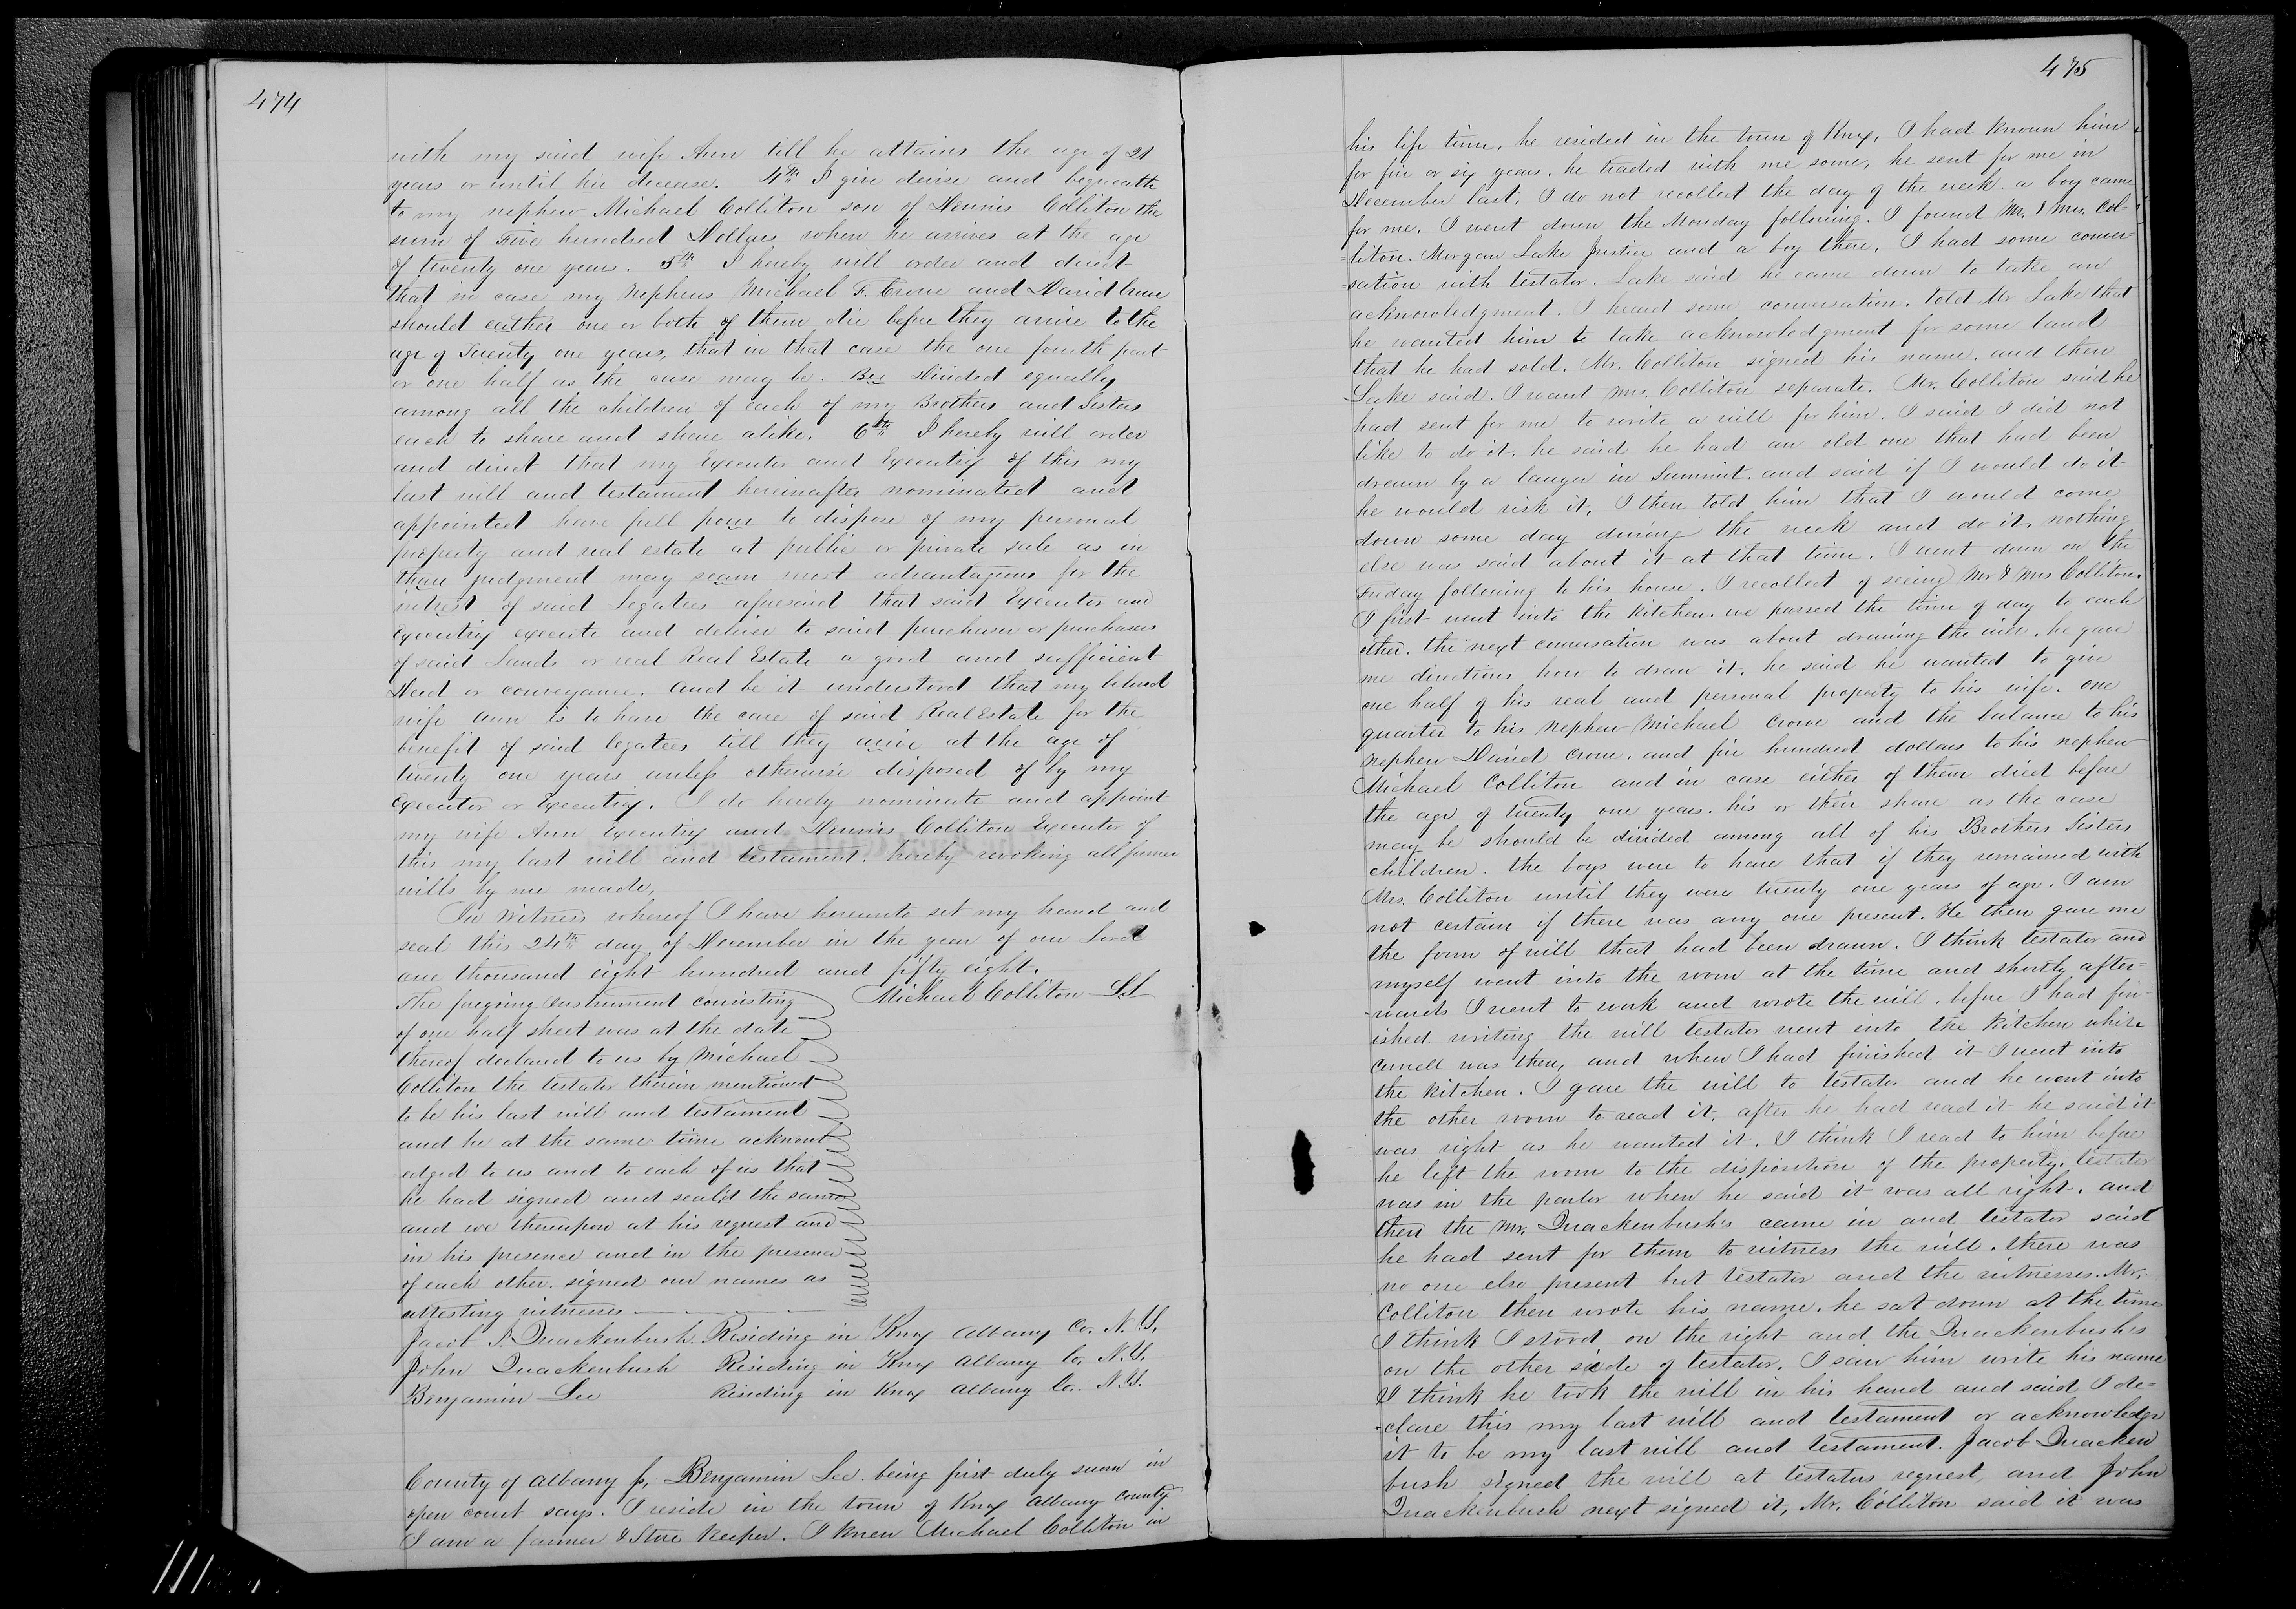 474
with my said wife Ann till he attains the age of 21
years or until his decease. 4th I give devise and bequeath
to my nephew Michael Colliton son of Dennis Colliton the
sum of Five hundred Dollars when he arrives at the age
of twenty one years. 5th I hereby will order and direct
that in case my Nephews Michael F. Crowe and David Crowe
should eather one or both of them die before they arrive to the
age of Twenty one years, that in that case the one fourth part
or one half as the case may be. Bee Divided equally
among all the children of each of my Brothers and Sisters
each to share and share alike. 6th I hereby will order
and direct that my Executor and Executrix of this my
last will and testament hereinafter nominated and
appointed have full power to dispose of my personal
property and real estate at public or private sale as in
thare judgment may seam most advantagious for the
intrest of said Legatees aforesaid that said Executor and
Executrix execute and deliver to said purchaser or purchasers
of said Lands or real Real Estate a good and sufficient
Deed or conveyance. and be it understood that my beloved
wife Ann is to have the care of said Real Estate for the
benefit of said legatees till they arive at the age of
twenty one years unless otherwise disposed of by my
Executor or Executrix. I do hereby nominate and appoint
my wife Ann Executrix and Dennis Colliton Executor of
this my last will and testament. hereby revoking all former
wills by me made,
In Witness whereof I have hereunto set my hand and
seal this 24th day of December in the year of our Lord
one thousand eight hundred and fifty eight.
Michael Colliton LS
The foregoing Instrument consisting
of one half sheet was at the date
thereof declared to us by Michael
Colliton the testator therein mentioned
to be his last will and testament
and he at the same time acknowl
edged to us and to each of us that
he had signed and sealed the same
and we thereupon at his request and
in his presence and in the presence
of each other. signed our names as
attesting witnesses
Jacob I. Quackenbush. Residing in Knox Albany Co. N.Y.
John Quackenbush Residing in Knox Albany Co. N.Y.
Benjamin Lee Residing in Knox Albany Co. N.Y.
County of Albany ss, Benjamin Lee. being first duly sworn in
open court says. I reside in the town of Knox Albany County
I am a farmer & Store Keeper. I knew Michael Colliton in
475
his life time, he resided in the town of Knox, I had known him
for five or six years. he traded with me some, he sent for me in
December last, I do not recollect the day of the week. a boy came
for me. I went down the Monday following. I found Mr. & Mrs. Col-
=liton. Morgan Lake Justice and a boy there. I had some conver=
=sation with testator. Lake said he came down to take an
acknowledgment. I heard some conversation. told Mr Lake that
he wanted him to take acknowledgment for some land
that he had sold. Mr. Colliton signed his name. and then
Lake said. I want Mrs. Colliton separate. Mr. Colliton said he
had sent for me to write a will for him. I said I did not
like to do it. he said he had an old one that had been
drawn by a lawyer in Summit. and said if I would do it
he would risk it, I then told him that I would come
down some day during the week and do it. nothing
else was said about it at that time. I went down on the
Friday following to his house. I recollect of seeing Mr & Mrs Colliton.
I first went into the kitchen. we passed the time of day to each
other. the next conversation was about drawing the will. he gave
me directions how to draw it. he said he wanted to give
one half of his real and personal property to his wife. one
quarter to his nephew Michael Crowe and the balance to his
nephew David Crowe. and five hundred dollars to his nephew
Michael Colliton and in case either of them died before
the age of twenty one years. his or their share as the case
may be should be divided among all of his Brothers Sisters
children. the boys were to have that if they remained with
Mrs. Colliton until they were twenty one years of age. I am
not certain if there was any one present. He then gave me
the form of will that had been drawn. I think testator and
myself went into the room at the time and shortly after=
-wards I went to work and wrote the will. before I had fin-
ished writing the will testator went into the kitchen while
was then, and when I had finished it I went into
the kitchen. I gave the will to testator and he went into
the other room to read it. after he had read it he said it
was right as he wanted it. I think I read to him before
he left the room to the disposition of the property. testator
was in the parlor when he said it was all right. and
then the Mr. Quackenbush's came in and testator said
he had sent for them to witness the will. there was
no one else present but testator and the witnesses. Mr.
Colliton then wrote his name. he sat down at the time
I think I stood on the right and the Quackenbushs
on the other side of testator. I saw him write his name
I think he took the will in his hand and said I de=
-clare this my last will and testament or acknowledge
it to be my last will and testament. Jacob Quacken
bush signed the will at testators request, and John
Quackenbush next signed it, Mr. Colliton said it was